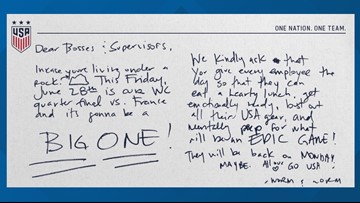 USA
ONE NATION. ONE TEAM.
Dear Bosses & Supervisors,
Incase you're living under a
rock, This Friday,
June 28th is our WC
quarter final vs. France
and its gonna be a
BIG ONE!
We kindly ask that
you give every employee the
day so that they can
eat a hearty lunch, get
emotionally ready, bust out
all their USA gear, and
mentally prep for what
will be an EPIC GAME!
They will be back on MONDAY,
MAYBE. GO USA!